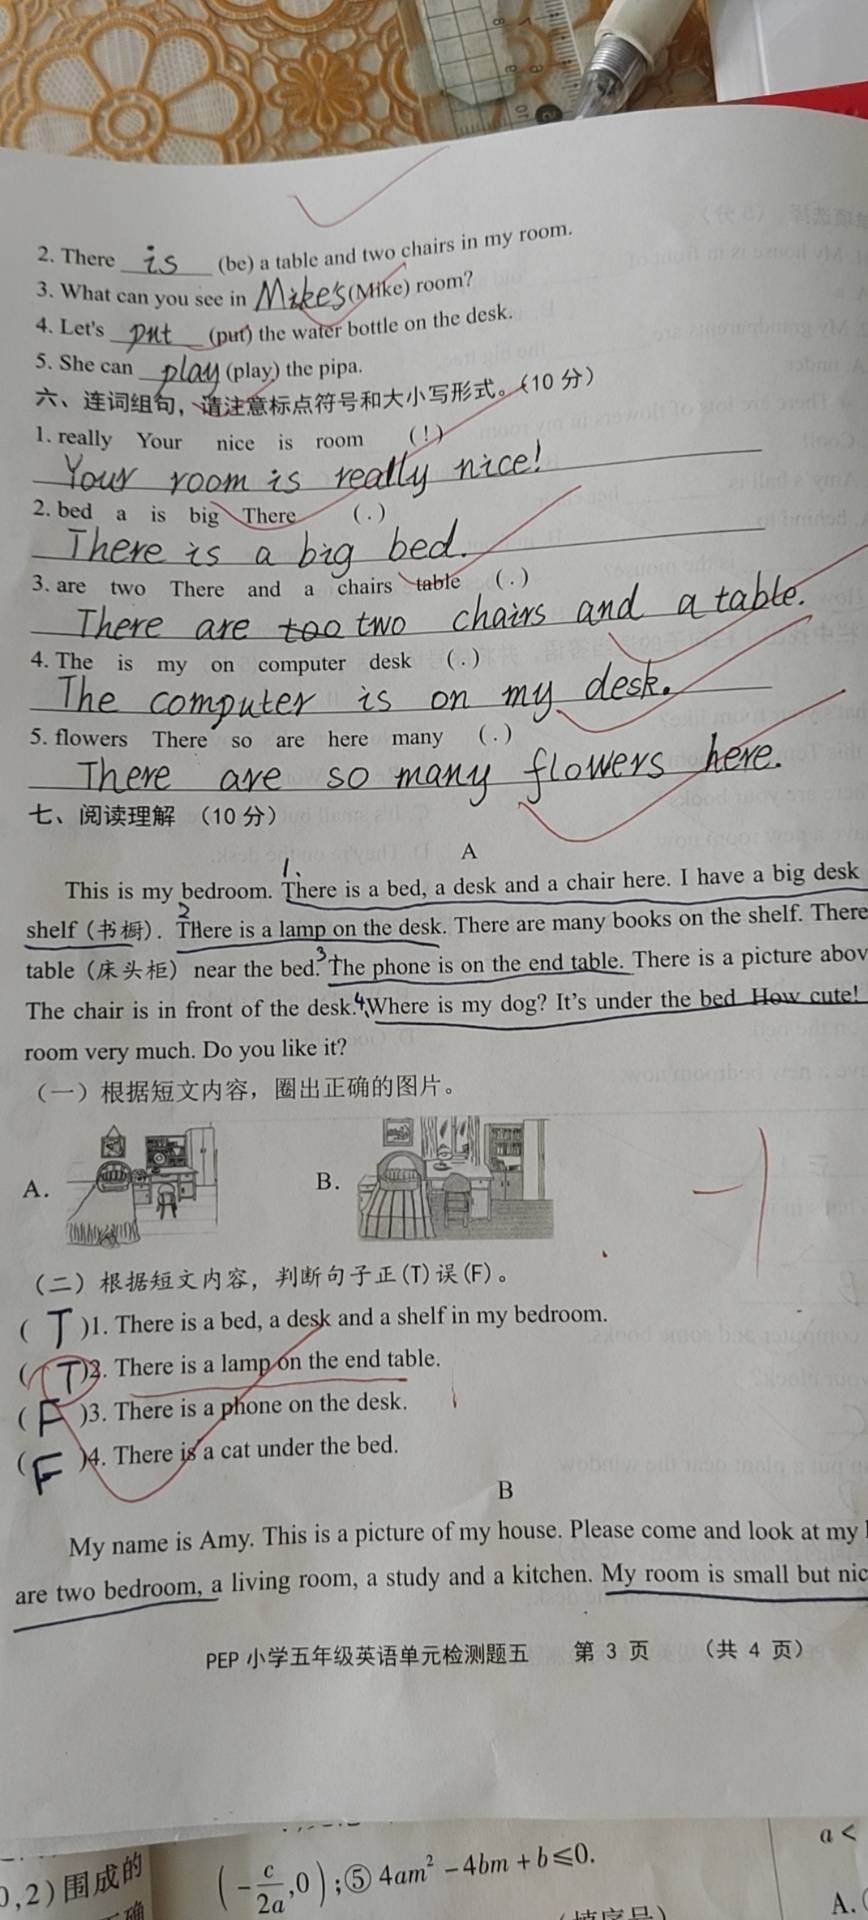 2. There is (be) a table and two chairs in my room.
3. What can you see in Mike's (Mike) room?
4. Let's put (put) the water bottle on the desk.
5. She can play (play) the pipa.
六、连词组句，请注意标点符号和大小写形式。（10 分）
1. really Your nice is room (!)
Your room is really nice!
2. bed a is big There (.)
There is a big bed.
3. are two There and a chairs table (.)
There are too two chairs and a table.
4. The is my on computer desk (.)
The computer is on my desk.
5. flowers There so are here many (.)
There are so many flowers here.
七、阅读理解 （10 分）
A
1.
This is my bedroom. There is a bed, a desk and a chair here. I have a big desk
2
shelf (书橱). There is a lamp on the desk. There are many books on the shelf. There
3
table (床头柜) near the bed. The phone is on the end table. There is a picture abov
4
The chair is in front of the desk. Where is my dog? It's under the bed How cute!
room very much. Do you like it?
（一）根据短文内容，圈出正确的图片。
A. B.
-1
（二）根据短文内容，判断句子正(T)误(F)。
( T )1. There is a bed, a desk and a shelf in my bedroom.
( T )2. There is a lamp on the end table.
( F )3. There is a phone on the desk.
( F )4. There is a cat under the bed.
B
My name is Amy. This is a picture of my house. Please come and look at my
are two bedroom, a living room, a study and a kitchen. My room is small but nic
PEP 小学五年级英语单元检测题五 第 3 页 （共 4 页）
a <
0,2) 围成的 (-c/2a,0);⑤ 4am²-4bm+b≤0.
A.